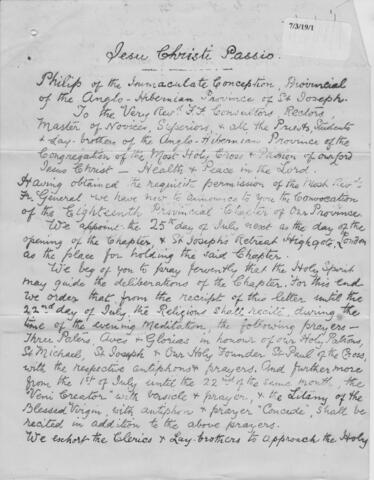 7/3/19/1
Jesu Christi Passio.
Philip of the Immaculate Conception, Provincial
of the Anglo-Hibernian Province of St Joseph.
To the Very Revd. F.F. Consultors Rectors,
Master of Novices, Superiors, & all the Priests, Students
& Lay-brothers of the Anglo-Hibernian Province of the
Congregation of the Most Holy Cross & Passion of our Lord
Jesus Christ — Health & Peace in the Lord.
Having obtained the requisite permission of the Most Revd.
Fr General we have now to announce to you the Convocation
of the Eighteenth Provincial Chapter of Our Province
We appoint the 25th day of July next as the day of the
opening of the Chapter, & St Joseph's Retreat Highgate, London
as the place for holding the said Chapter.
We beg of you to pray fervently that the Holy Spirit
may guide the deliberations of the Chapter. For this end
we order that from the receipt of this letter until the
22nd day of July, the Religious shall recite, during the
time of the evening Meditation, the following prayers—
Three Paters, Aves & Glorias in honour of our Holy Patrons,
St Michael, St Joseph & Our Holy Founder St Paul of the Cross,
with the respective antiphons & prayers. And further more
from the 1st of July until the 22nd of the same month, the
"Veni Creator" with versicle & prayer, & the Litany of the
Blessed Virgin, with antiphon & prayer "Concede", shall be
recited in addition to the above prayers.
We exhort the Clerics & Lay-brothers to approach the Holy